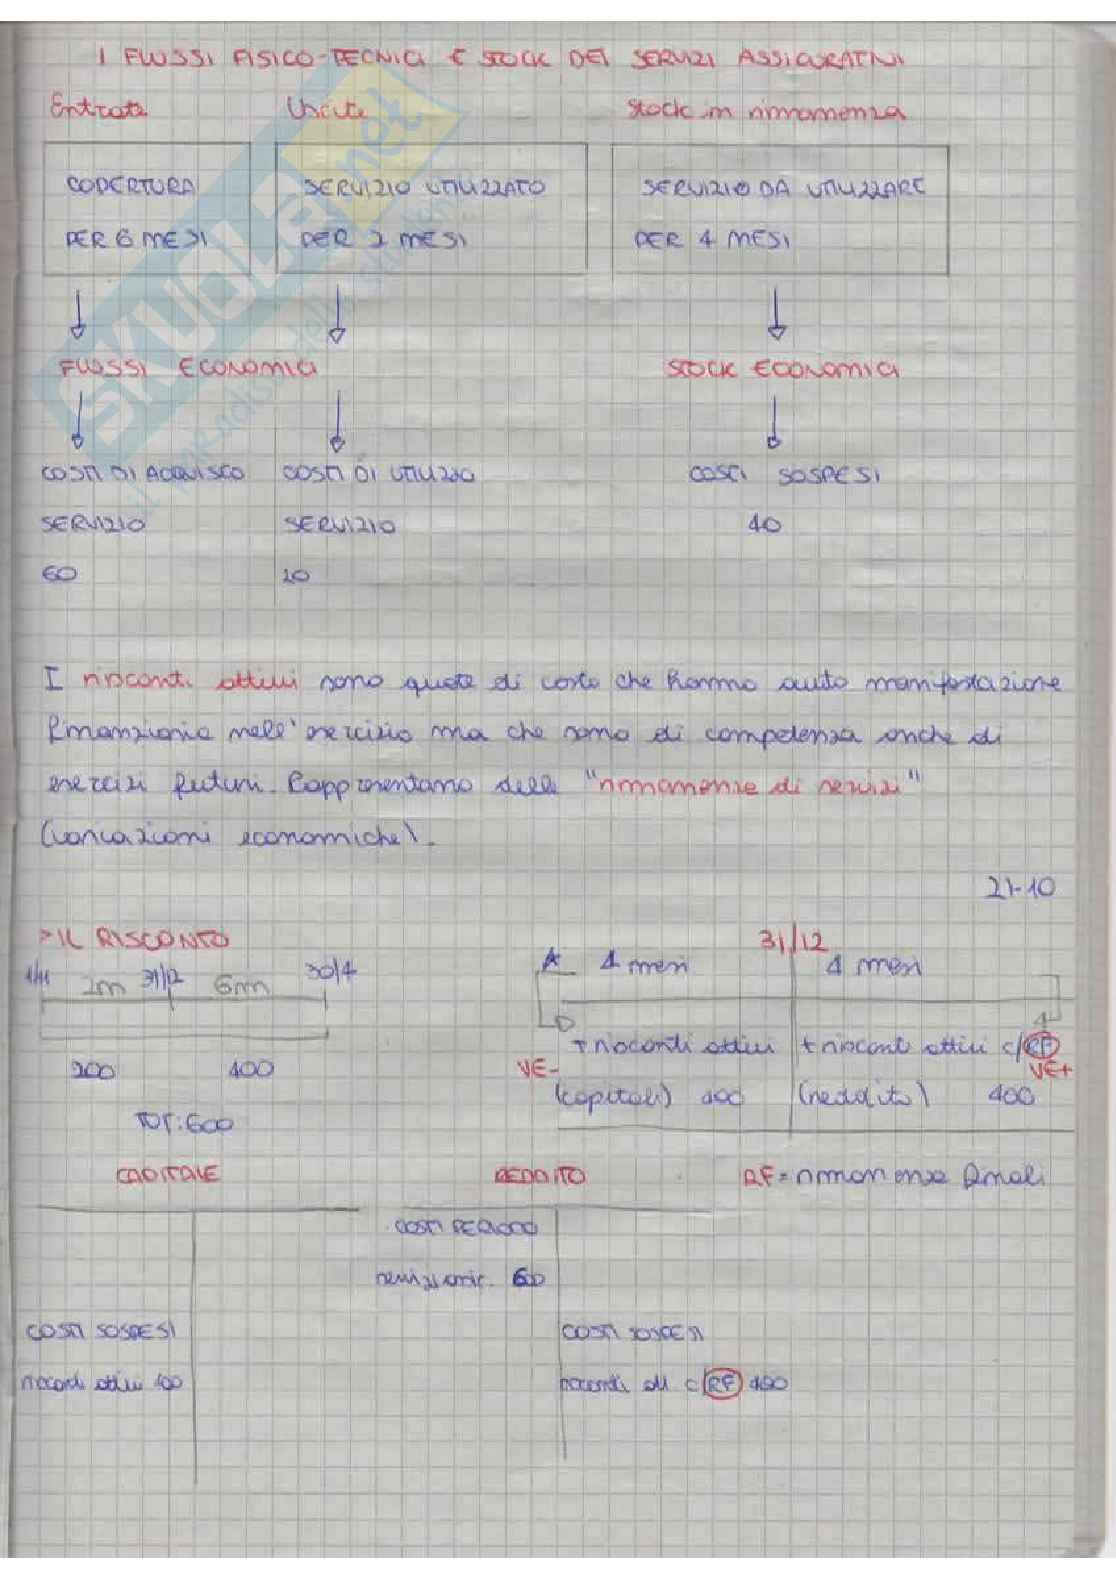 I FLUSSI FISICO-TECNICI E STOCK DEI SERVIZI ASSICURATIVI
Entrate Uscite Stock in rimanenza
COPERTURA SERVIZIO UTILIZZATO SERVIZIO DA UTILIZZARE
PER 6 MESI PER 2 MESI PER 4 MESI
FLUSSI ECONOMICI STOCK ECONOMICI
COSTI DI ACQUISTO COSTI DI UTILIZZO COSTI SOSPESI
SERVIZIO SERVIZIO 40
60 20
I risconti attivi sono quote di costo che hanno avuto manifestazione
finanziaria nell'esercizio ma che sono di competenza anche di
esercizi futuri. Rappresentano delle "rimanenze di servizi"
(variazioni economiche).
21-10
>IL RISCONTO 31/12
1/11 2m 31/12 6m 30/4 A 4 mesi 4 mesi
+ risconti attivi + risconti attivi c/RF
200 400 VE- VE+
(capitali) 400 (reddito) 400
TOT: 600
CAPITALE REDDITO RF = rimanenze finali
COSTI PERIODO
servizi assic. 600
COSTI SOSPESI COSTI SOSPESI
risconti attivi 400 risconti att c/RF 400
SKUOLA.net